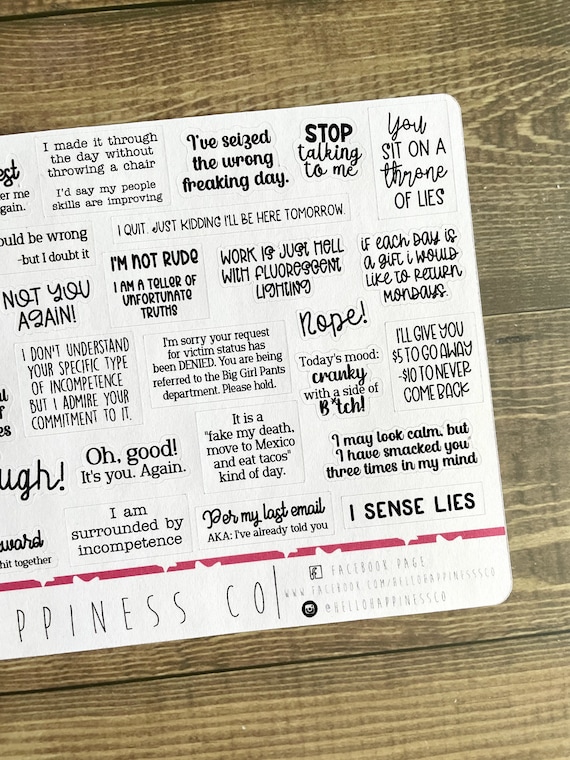 est
er me
gain.
I made it through
the day without
throwing a chair
I'd say my people
skills are improving
I've seized
the wrong
freaking day.
STOP
talking
to me
You
SIT ON A
throne
OF LIES
ould be wrong
-but I doubt it
I QUIT. JUST KIDDING I'LL BE HERE TOMORROW.
NOT YOU
AGAIN!
I'M NOT RUDE
I AM A TELLER OF
UNFORTUNATE
TRUTHS
WORK IS JUST HELL
WITH FLUORESCENT
LIGHTING
if each day is
a gift i would
like to return
Mondays.
I DON'T UNDERSTAND
YOUR SPECIFIC TYPE
OF INCOMPETENCE
BUT I ADMIRE YOUR
COMMITMENT TO IT.
I'm sorry your request
for victim status has
been DENIED. You are being
referred to the Big Girl Pants
department. Please hold.
Nope!
Today's mood:
cranky
with a side of
B*tch!
I'LL GIVE YOU
$5 TO GO AWAY
-$10 TO NEVER
COME BACK
ugh!
Oh, good!
It's you. Again.
It is a
"fake my death,
move to Mexico
and eat tacos"
kind of day.
I may look calm, but
I have smacked you
three times in my mind
ward
hit together
I am
surrounded by
incompetence
Per my last email
AKA: I've already told you
I SENSE LIES
PPINESS CO
FACEBOOK PAGE
WWW.FACEBOOK.COM/HELLOHAPPINESSCO
@HELLOHAPPINESSCO